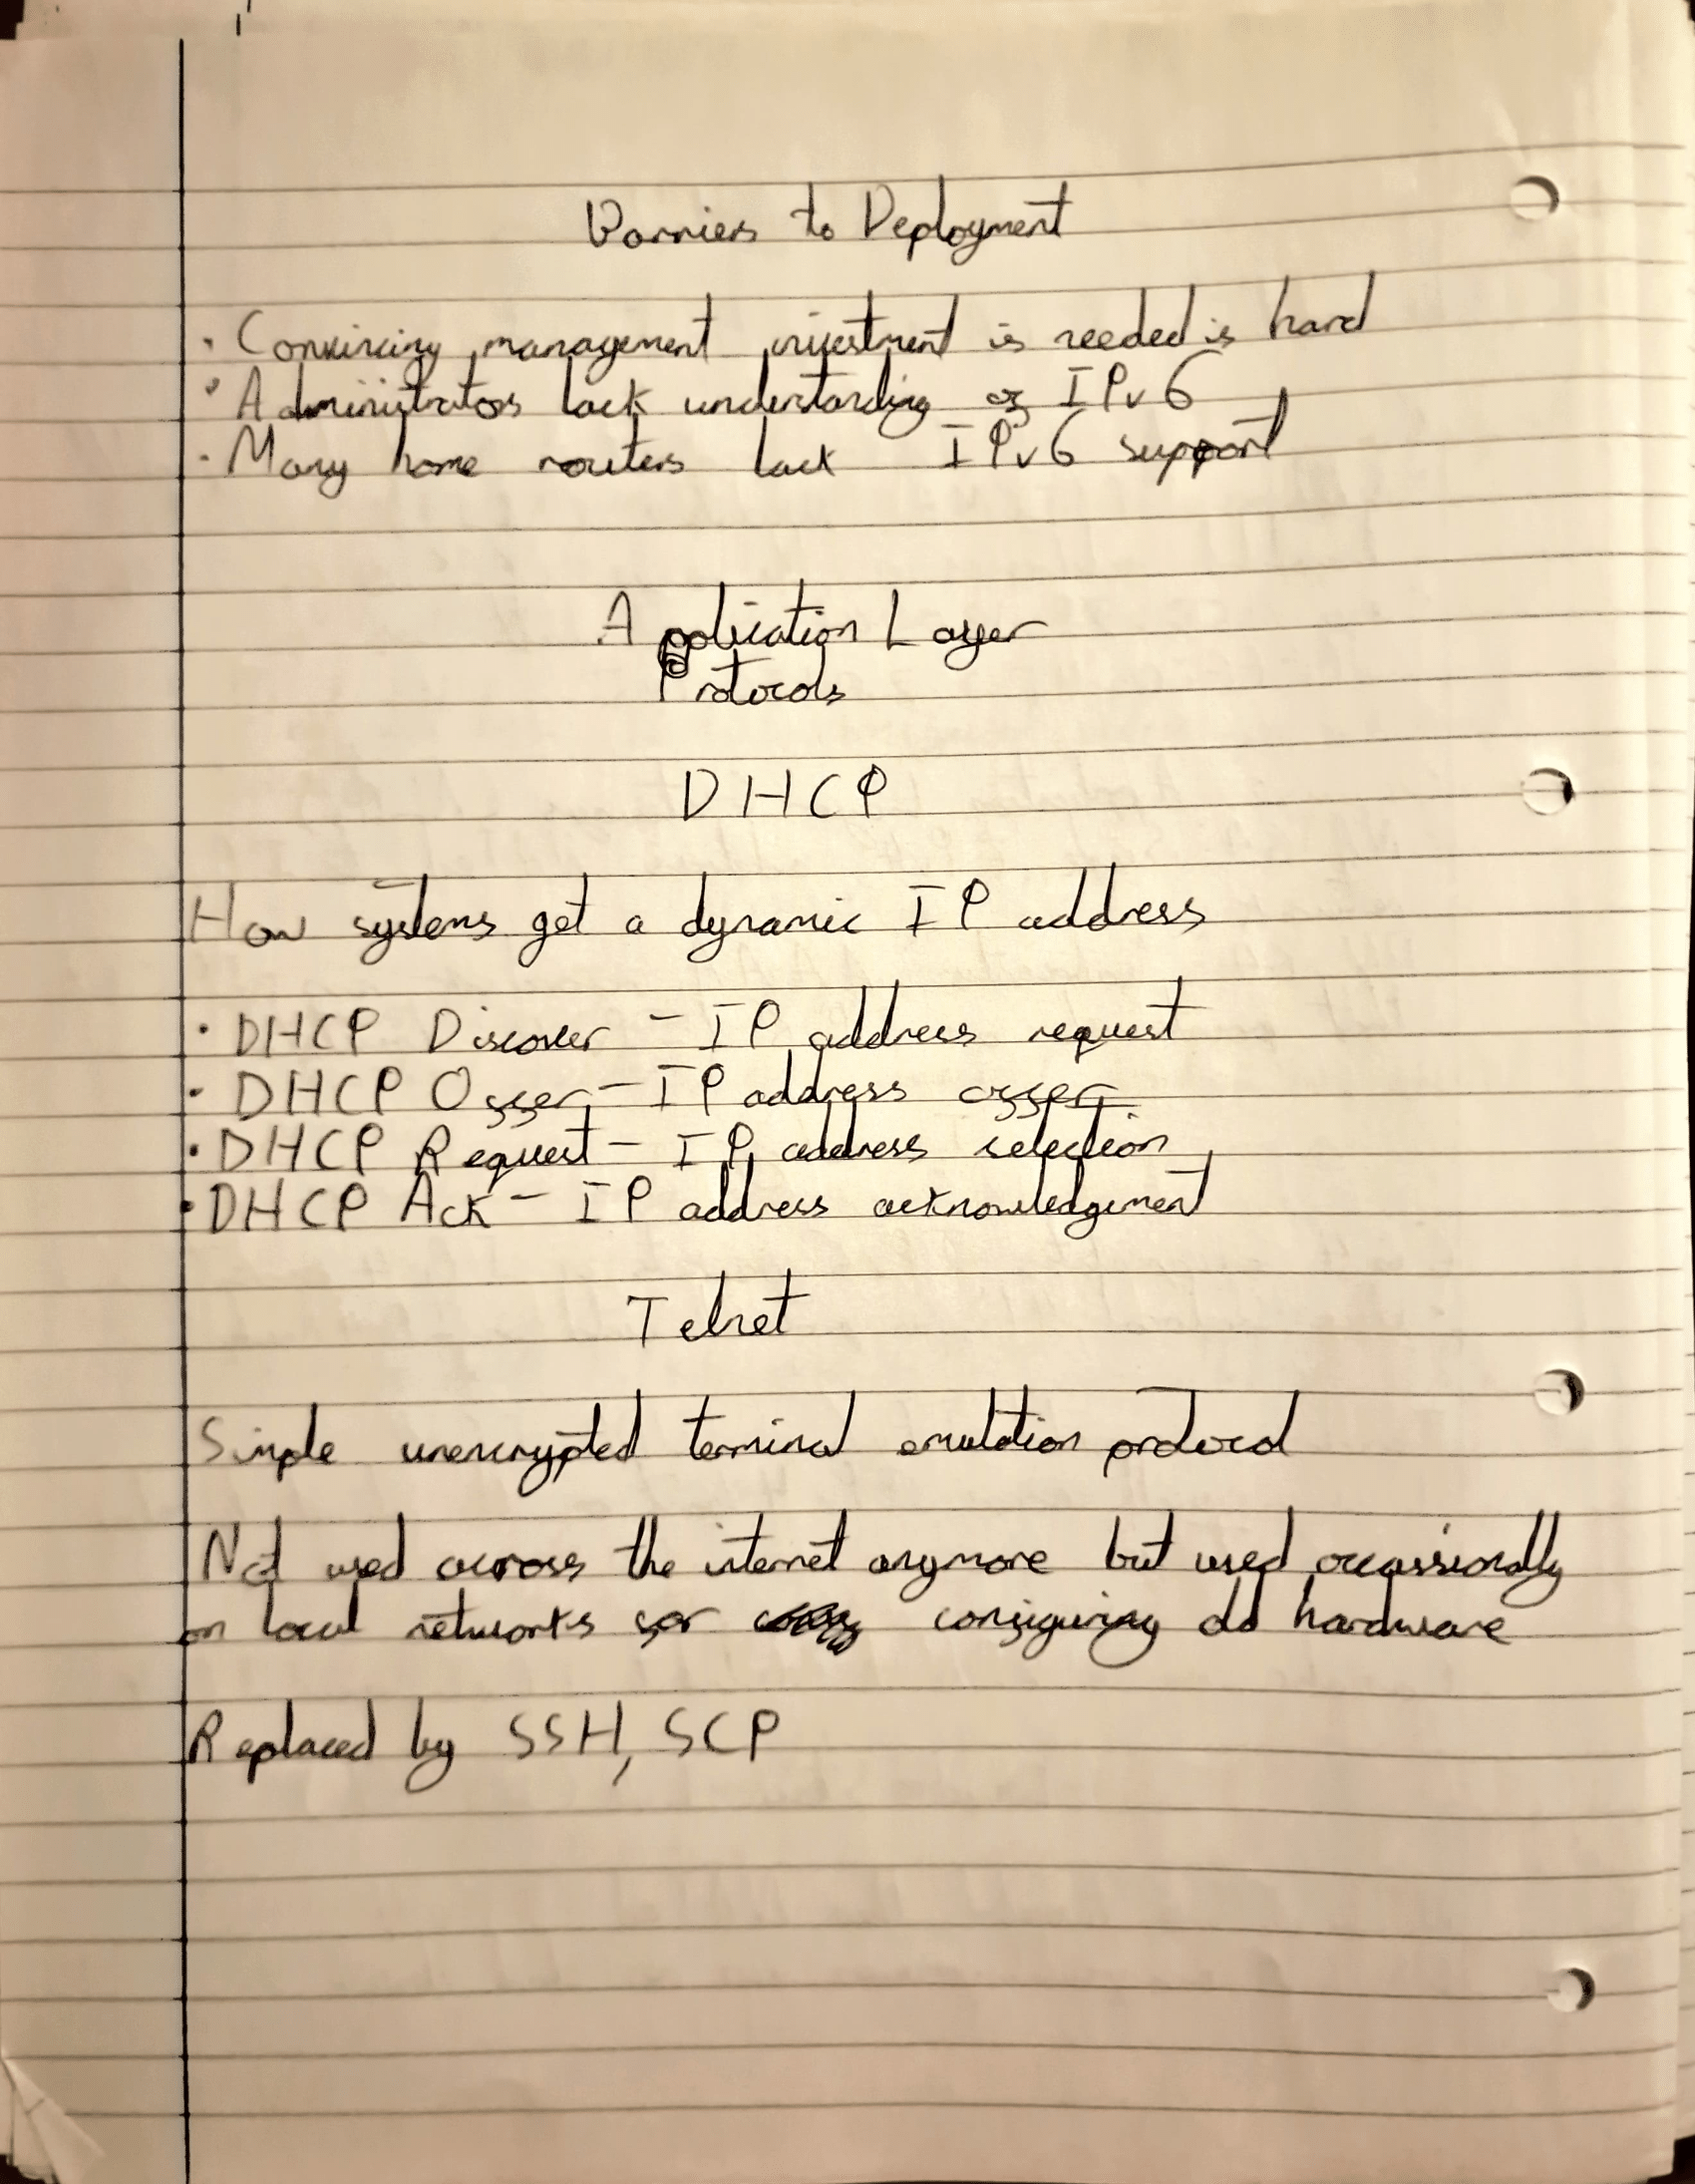 Barriers to Deployment
· Convincing management investment is needed is hard
· Administrators lack understanding of IPv6
· Many home routers lack IPv6 support
Application Layer
Protocols
DHCP
How systems get a dynamic IP address
· DHCP Discover - IP address request
· DHCP Offer - IP address offer
· DHCP Request - IP address selection
· DHCP Ack - IP address acknowledgement
Telnet
Simple unencrypted terminal emulation protocol
Not used across the internet anymore but used occassionally
on local networks for configuring old hardware
Replaced by SSH, SCP